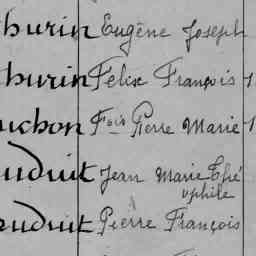 hurin Eugène Joseph
hurin Félix François 1
uchon F^ois Pierre Marie 1
uduit Jean Marie Thé
ophile
uduit Pierre François